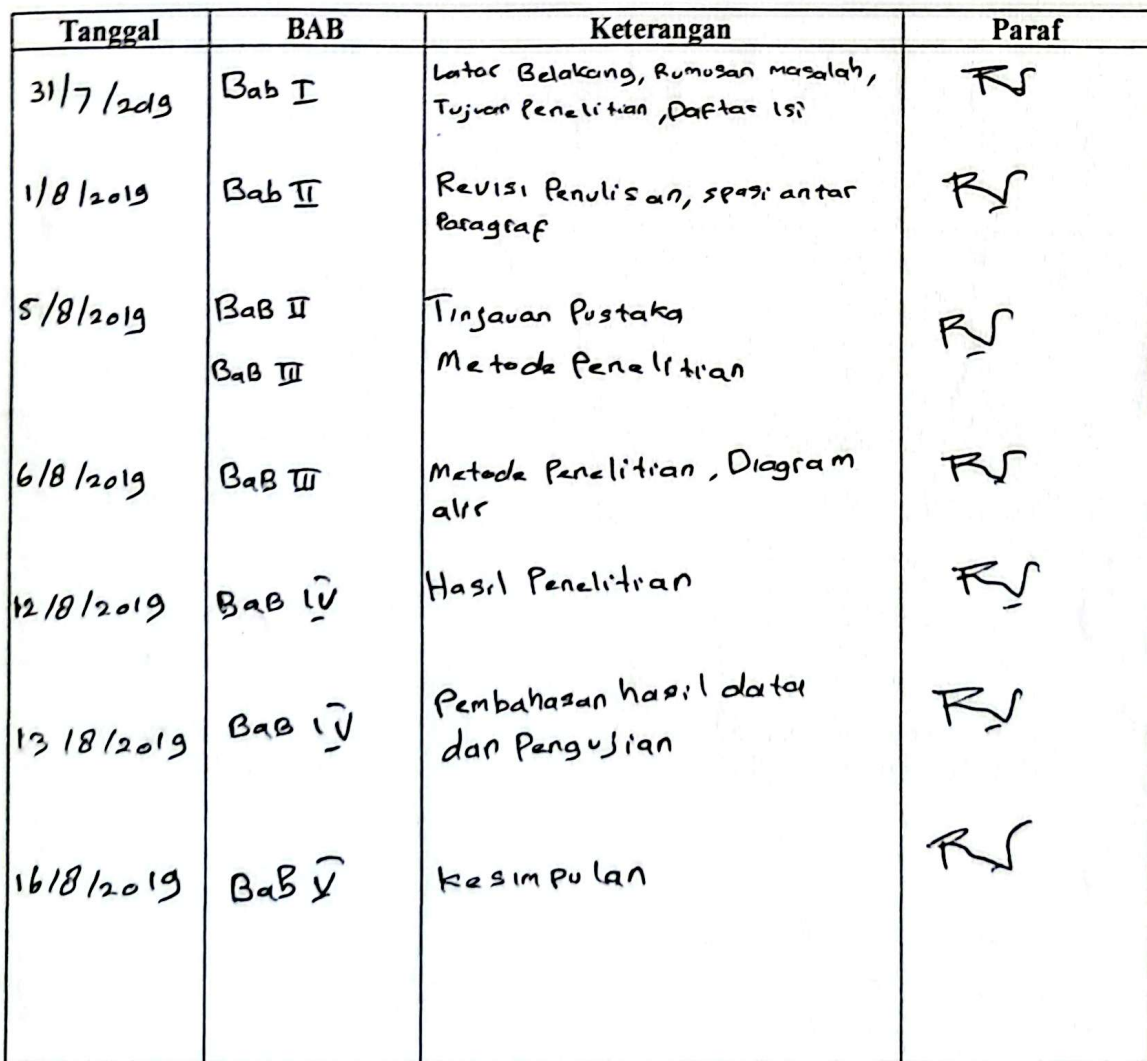 Tanggal BAB Keterangan Paraf
31/7/2019 Bab I Latar Belakang, Rumusan masalah,
Tujuan Penelitian, Daftar Isi
1/8/2019 Bab II Revisi Penulisan, spasi antar
Paragraf
5/8/2019 BaB II Tinjauan Pustaka
BaB III Metode Penelitian
6/8/2019 BaB III Metode Penelitian, Diagram
alir
12/8/2019 BaB IV Hasil Penelitian
13/8/2019 BaB IV Pembahasan hasil data
dan Pengujian
16/8/2019 BaB V Kesimpulan